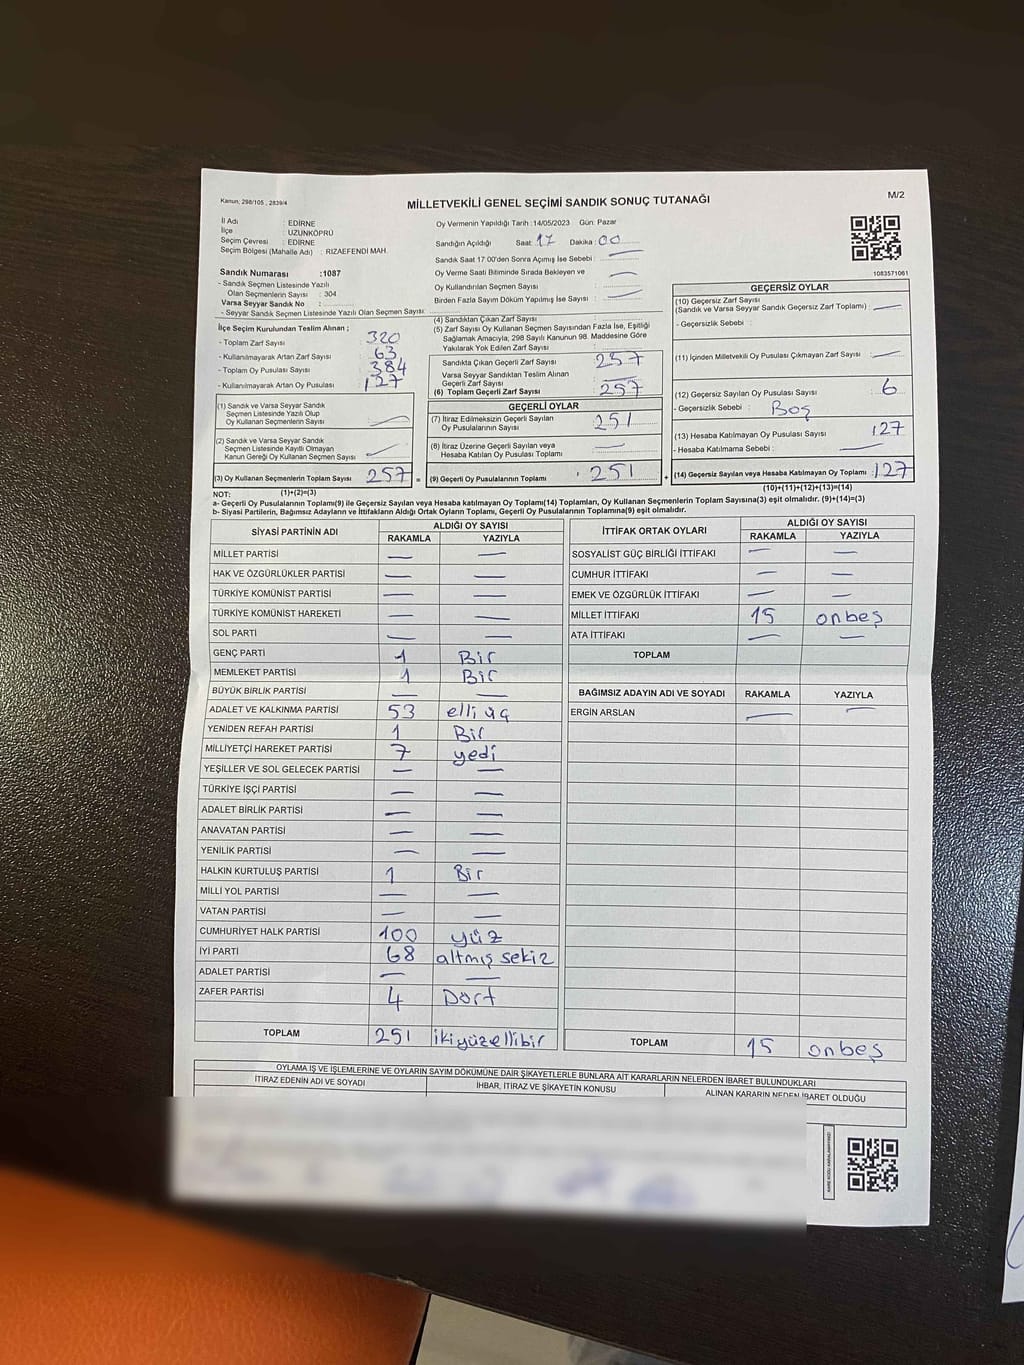 Kanun; 298/105 , 2839/4
MİLLETVEKİLİ GENEL SEÇİMİ SANDIK SONUÇ TUTANAĞI
M/2
İl Adı : EDİRNE
İlçe : UZUNKÖPRÜ
Seçim Çevresi : EDİRNE
Seçim Bölgesi (Mahalle Adı) : RIZAEFENDİ MAH.
Sandık Numarası :1087
- Sandık Seçmen Listesinde Yazılı
Olan Seçmenlerin Sayısı : 304
Varsa Seyyar Sandık No :
- Seyyar Sandık Seçmen Listesinde Yazılı Olan Seçmen Sayısı:
Oy Vermenin Yapıldığı Tarih : 14/05/2023 Gün: Pazar
Sandığın Açıldığı Saat: 17 Dakika : 00
Sandık Saat 17 00'den Sonra Açımış İse Sebebi : —
Oy Verme Saati Bitiminde Sırada Bekleyen ve
Oy Kullandırılan Seçmen Sayısı : —
Birden Fazla Sayım Döküm Yapılmış İse Sayısı : —
1083571061
İlçe Seçim Kurulundan Teslim Alınan ;
- Toplam Zarf Sayısı : 320
- Kullanılmayarak Artan Zarf Sayısı : 63
- Toplam Oy Pusulası Sayısı : 384
- Kullanılmayarak Artan Oy Pusulası : 127
(1) Sandık ve Varsa Seyyar Sandık
Seçmen Listesinde Yazılı Olup
Oy Kullanan Seçmenlerin Sayısı : —
(2) Sandık ve Varsa Seyyar Sandık
Seçmen Listesinde Kayıtlı Olmayan
Kanun Gereği Oy Kullanan Seçmen Sayısı : —
(3) Oy Kullanan Seçmenlerin Toplam Sayısı : 257
(1)+(2)=(3)
(4) Sandıktan Çıkan Zarf Sayısı :
(5) Zarf Sayısı Oy Kullanan Seçmen Sayısından Fazla İse, Eşitliği
Sağlamak Amacıyla, 298 Sayılı Kanunun 98. Maddesine Göre
Yakılarak Yok Edilen Zarf Sayısı :
Sandıkta Çıkan Geçerli Zarf Sayısı : 257
Varsa Seyyar Sandıktan Teslim Alınan
Geçerli Zarf Sayısı : —
(6) Toplam Geçerli Zarf Sayısı : 257
GEÇERLİ OYLAR
(7) İtiraz Edilmeksizin Geçerli Sayılan
Oy Pusulalarının Sayısı : 251
(8) İtiraz Üzerine Geçerli Sayılan veya
Hesaba Katılan Oy Pusulası Toplamı : —
= (9) Geçerli Oy Pusulalarının Toplamı : 251
GEÇERSİZ OYLAR
(10) Geçersiz Zarf Sayısı
(Sandık ve Varsa Seyyar Sandık Geçersiz Zarf Toplamı) : —
- Geçersizlik Sebebi :
(11) İçinden Milletvekili Oy Pusulası Çıkmayan Zarf Sayısı : —
(12) Geçersiz Sayılan Oy Pusulası Sayısı : 6
- Geçersizlik Sebebi : Boş
(13) Hesaba Katılmayan Oy Pusulası Sayısı : 127
- Hesaba Katılmama Sebebi : —
+ (14) Geçersiz Sayılan veya Hesaba Katılmayan Oy Toplamı : 127
(10)+(11)+(12)+(13)=(14)
NOT:
a- Geçerli Oy Pusulalarının Toplamı(9) ile Geçersiz Sayılan veya Hesaba katılmayan Oy Toplamı(14) Toplamları, Oy Kullanan Seçmenlerin Toplam Sayısına(3) eşit olmalıdır. (9)+(14)=(3)
b- Siyasi Partilerin, Bağımsız Adayların ve İttifakların Aldığı Ortak Oyların Toplamı, Geçerli Oy Pusulalarının Toplamına(9) eşit olmalıdır.
SİYASİ PARTİNİN ADI ALDIĞI OY SAYISI
RAKAMLA YAZIYLA
MİLLET PARTİSİ — —
HAK VE ÖZGÜRLÜKLER PARTİSİ — —
TÜRKİYE KOMÜNİST PARTİSİ — —
TÜRKİYE KOMÜNİST HAREKETİ — —
SOL PARTİ — —
GENÇ PARTİ 1 Bir
MEMLEKET PARTİSİ 1 Bir
BÜYÜK BİRLİK PARTİSİ — —
ADALET VE KALKINMA PARTİSİ 53 elli üç
YENİDEN REFAH PARTİSİ 1 Bir
MİLLİYETÇİ HAREKET PARTİSİ 7 yedi
YEŞİLLER VE SOL GELECEK PARTİSİ — —
TÜRKİYE İŞÇİ PARTİSİ — —
ADALET BİRLİK PARTİSİ — —
ANAVATAN PARTİSİ — —
YENİLİK PARTİSİ — —
HALKIN KURTULUŞ PARTİSİ 1 Bir
MİLLİ YOL PARTİSİ — —
VATAN PARTİSİ — —
CUMHURİYET HALK PARTİSİ 100 yüz
İYİ PARTİ 68 altmış sekiz
ADALET PARTİSİ — —
ZAFER PARTİSİ 4 Dört
TOPLAM 251 ikiyüzellibir
İTTİFAK ORTAK OYLARI ALDIĞI OY SAYISI
RAKAMLA YAZIYLA
SOSYALİST GÜÇ BİRLİĞİ İTTİFAKI — —
CUMHUR İTTİFAKI — —
EMEK VE ÖZGÜRLÜK İTTİFAKI — —
MİLLET İTTİFAKI 15 onbeş
ATA İTTİFAKI — —
TOPLAM
BAĞIMSIZ ADAYIN ADI VE SOYADI RAKAMLA YAZIYLA
ERGİN ARSLAN — —
TOPLAM 15 onbeş
OYLAMA İŞ VE İŞLEMLERİNE VE OYLARIN SAYIM DÖKÜMÜNE DAİR ŞİKAYETLERLE BUNLARA AİT KARARLARIN NELERDEN İBARET BULUNDUKLARI
İTİRAZ EDENİN ADI VE SOYADI İHBAR, İTİRAZ VE ŞİKAYETİN KONUSU ALINAN KARARIN NEDEN İBARET OLDUĞU